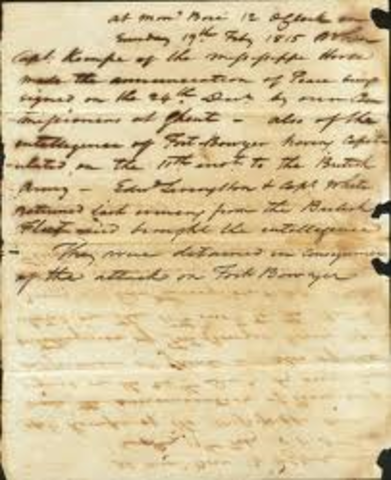 at mons Bore 12 OClock on
Sunday 19th Feby 1815
Capt. Kempe of the Missisippi Horse
made the annunciation of Peace being
signed on the 24th Decr by our Com
missioners at Ghent – also of the
intelligence of Fort Bowyer having Capit
ulated on the 11th inst to the British
Army – Edwd Livingston & Capt White
returned last evening from the British
Fleet and brought the intelligence
They were detained in consequence
of the attack on Fort Bowyer